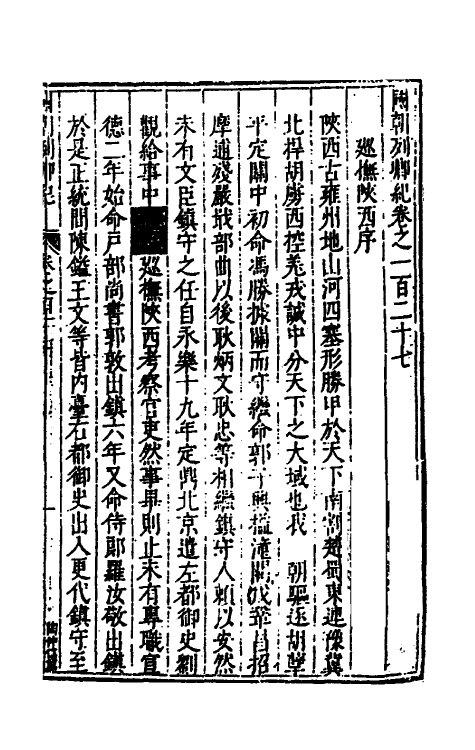 國朝列卿紀卷之一百二十七
巡撫陝西序
陝西古雍州地山河四塞形勝甲於天下南割楚蜀東連豫冀
北捍胡虜西控羗戎誠中分天下之大域也我 朝驅逐胡孽
平定關中初命馮勝據關而守繼命郭子興搤潼關收招
摩逋殘嚴戢部曲以後耿炳文耿忠等相繼鎮守人賴以安然
未有文臣鎮守之任自永樂十九年定鼎北京遣左都御史劉
觀給事中 巡撫陝西考察官吏然事畢則止未有專職宣
德二年始命戶部尚書郭敦出鎮六年又命侍郎羅汝敬出鎮
於是正統間陳鎰王文等皆内臺右都御史出入更代鎮守至